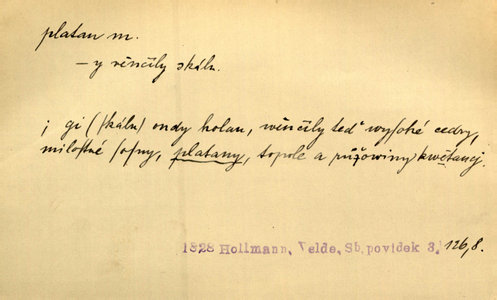 platan m.
– y věnčily skálu.
; gi (skálu) ondy holau, wěnčily teď wysoké cedry,
milostné sosny, platany, topole a růžowiny kwětaucj.
1828 Hollmann, Velde, Sb. povídek 3, 126, 8.